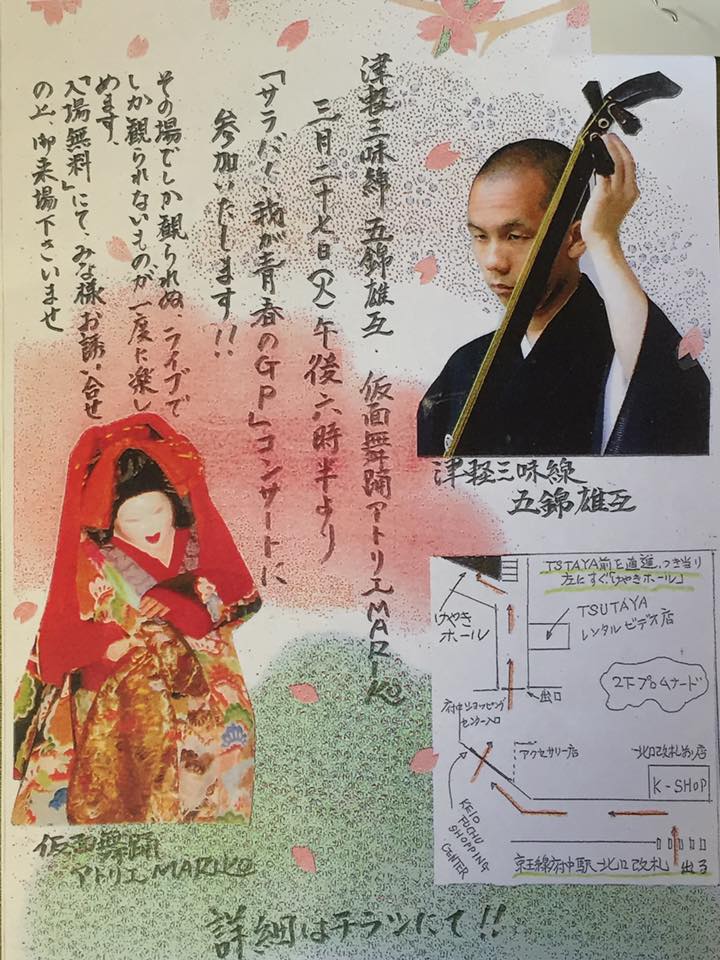 津軽三味線 五錦雄互・仮面舞踊アトリエMARIKO
三月二十七日(火)午後六時半より
「サラバ!我が青春のGP」コンサートに
参加いたします!!
その場でしか観られぬ、ライブで
しか観られないものが一度に楽し
めます、
「入場無料」にて、みな様お誘い合せ
の上、御来場下さいませ
津軽三味線
五錦雄互
TSTAYA前を直進、つき当り
左にすぐ「けやきホール」
けやき
ホール
TSUTAYA
レンタルビデオ店
2下プロムナード
出口
府中ショッピング
センター入口
アクセサリー店
北口改札前店
K-SHOP
KEIO
FUCHU
SHOPPING
CENTER
京王線府中駅、北口改札
出る
仮面舞踊
アトリエMARIKO
詳細はチラシにて!!